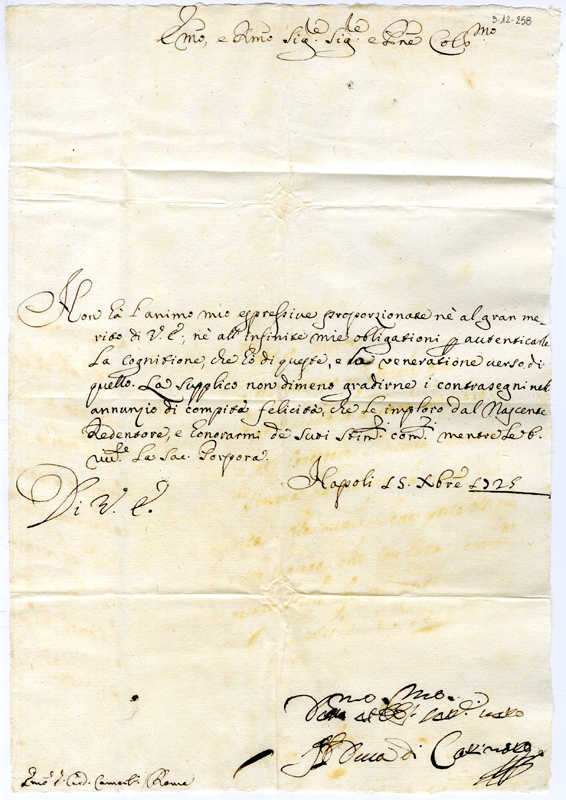 3-12-258
Emo, e Rmo Sig.re Sig.re e Prne Coll.mo
Non hà l'animo mio espressive proporzionate nè al gran me-
rito di V.ª E.ª, nè all'infinite mie obligationi p autenticarle
la cognitione, che hò di queste, e la veneratione verso di
quello. La supplico non dimeno gradirne i contrasegni nell
annunzio di compita felicità, che le imploro dal Nascente
Redentore, e honorarmi de suoi stim.mi com.di mentre le b.
la Sac. Porpora.
Napoli 15. Xbre 1725
Di V. E.
Duca di
Emo S. Card. Roma